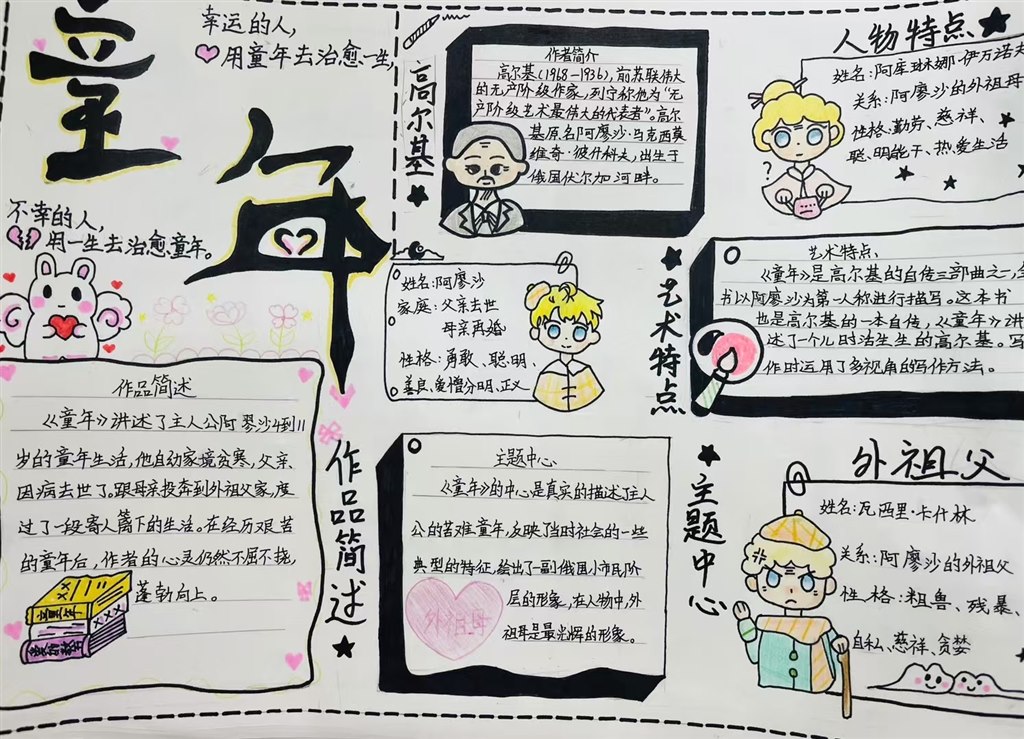 童年
幸运的人,
用童年去治愈一生,
不幸的人,
用一生去治愈童年。
作品简述
《童年》讲述了主人公阿廖沙4到11
岁的童年生活,他自幼家境贫寒,父亲
因病去世了。跟母亲投奔到外祖父家,度
过了一段寄人篱下的生活。在经历艰苦
的童年后,作者的心灵仍然不屈不挠,
蓬勃向上。
童年
作品简述
高尔基
作者简介
高尔基(1968-1936),前苏联伟大
的无产阶级作家,列宁称他为“无
产阶级艺术最伟大的代表者”。高尔
基原名阿廖沙·马克西莫
维奇·彼什科夫,出生于
俄国伏尔加河畔。
姓名:阿廖沙
家庭:父亲去世
母亲再婚
性格:勇敢、聪明、
善良、爱憎分明、正义
主题中心
《童年》的中心是真实的描述了主人
公的苦难童年,反映了当时社会的一些
典型的特征,绘出了一副俄国小市民阶
层的形象,在人物中,外
祖母是最光辉的形象。
外祖母
主题中心
人物特点
姓名:阿库琳娜·伊万诺夫
关系:阿廖沙的外祖母
性格:勤劳、慈祥、
聪明能干、热爱生活
?
艺术特点
艺术特点
《童年》是高尔基的自传三部曲之一,全
书以阿廖沙为第一人称进行描写。这本书
也是高尔基的一本自传,《童年》讲
述了一个儿时活生生的高尔基。写
作时运用了多视角的写作方法。
外祖父
姓名:瓦西里·卡什林
关系:阿廖沙的外祖父
性格:粗兽、残暴、
自私、慈祥、贪婪